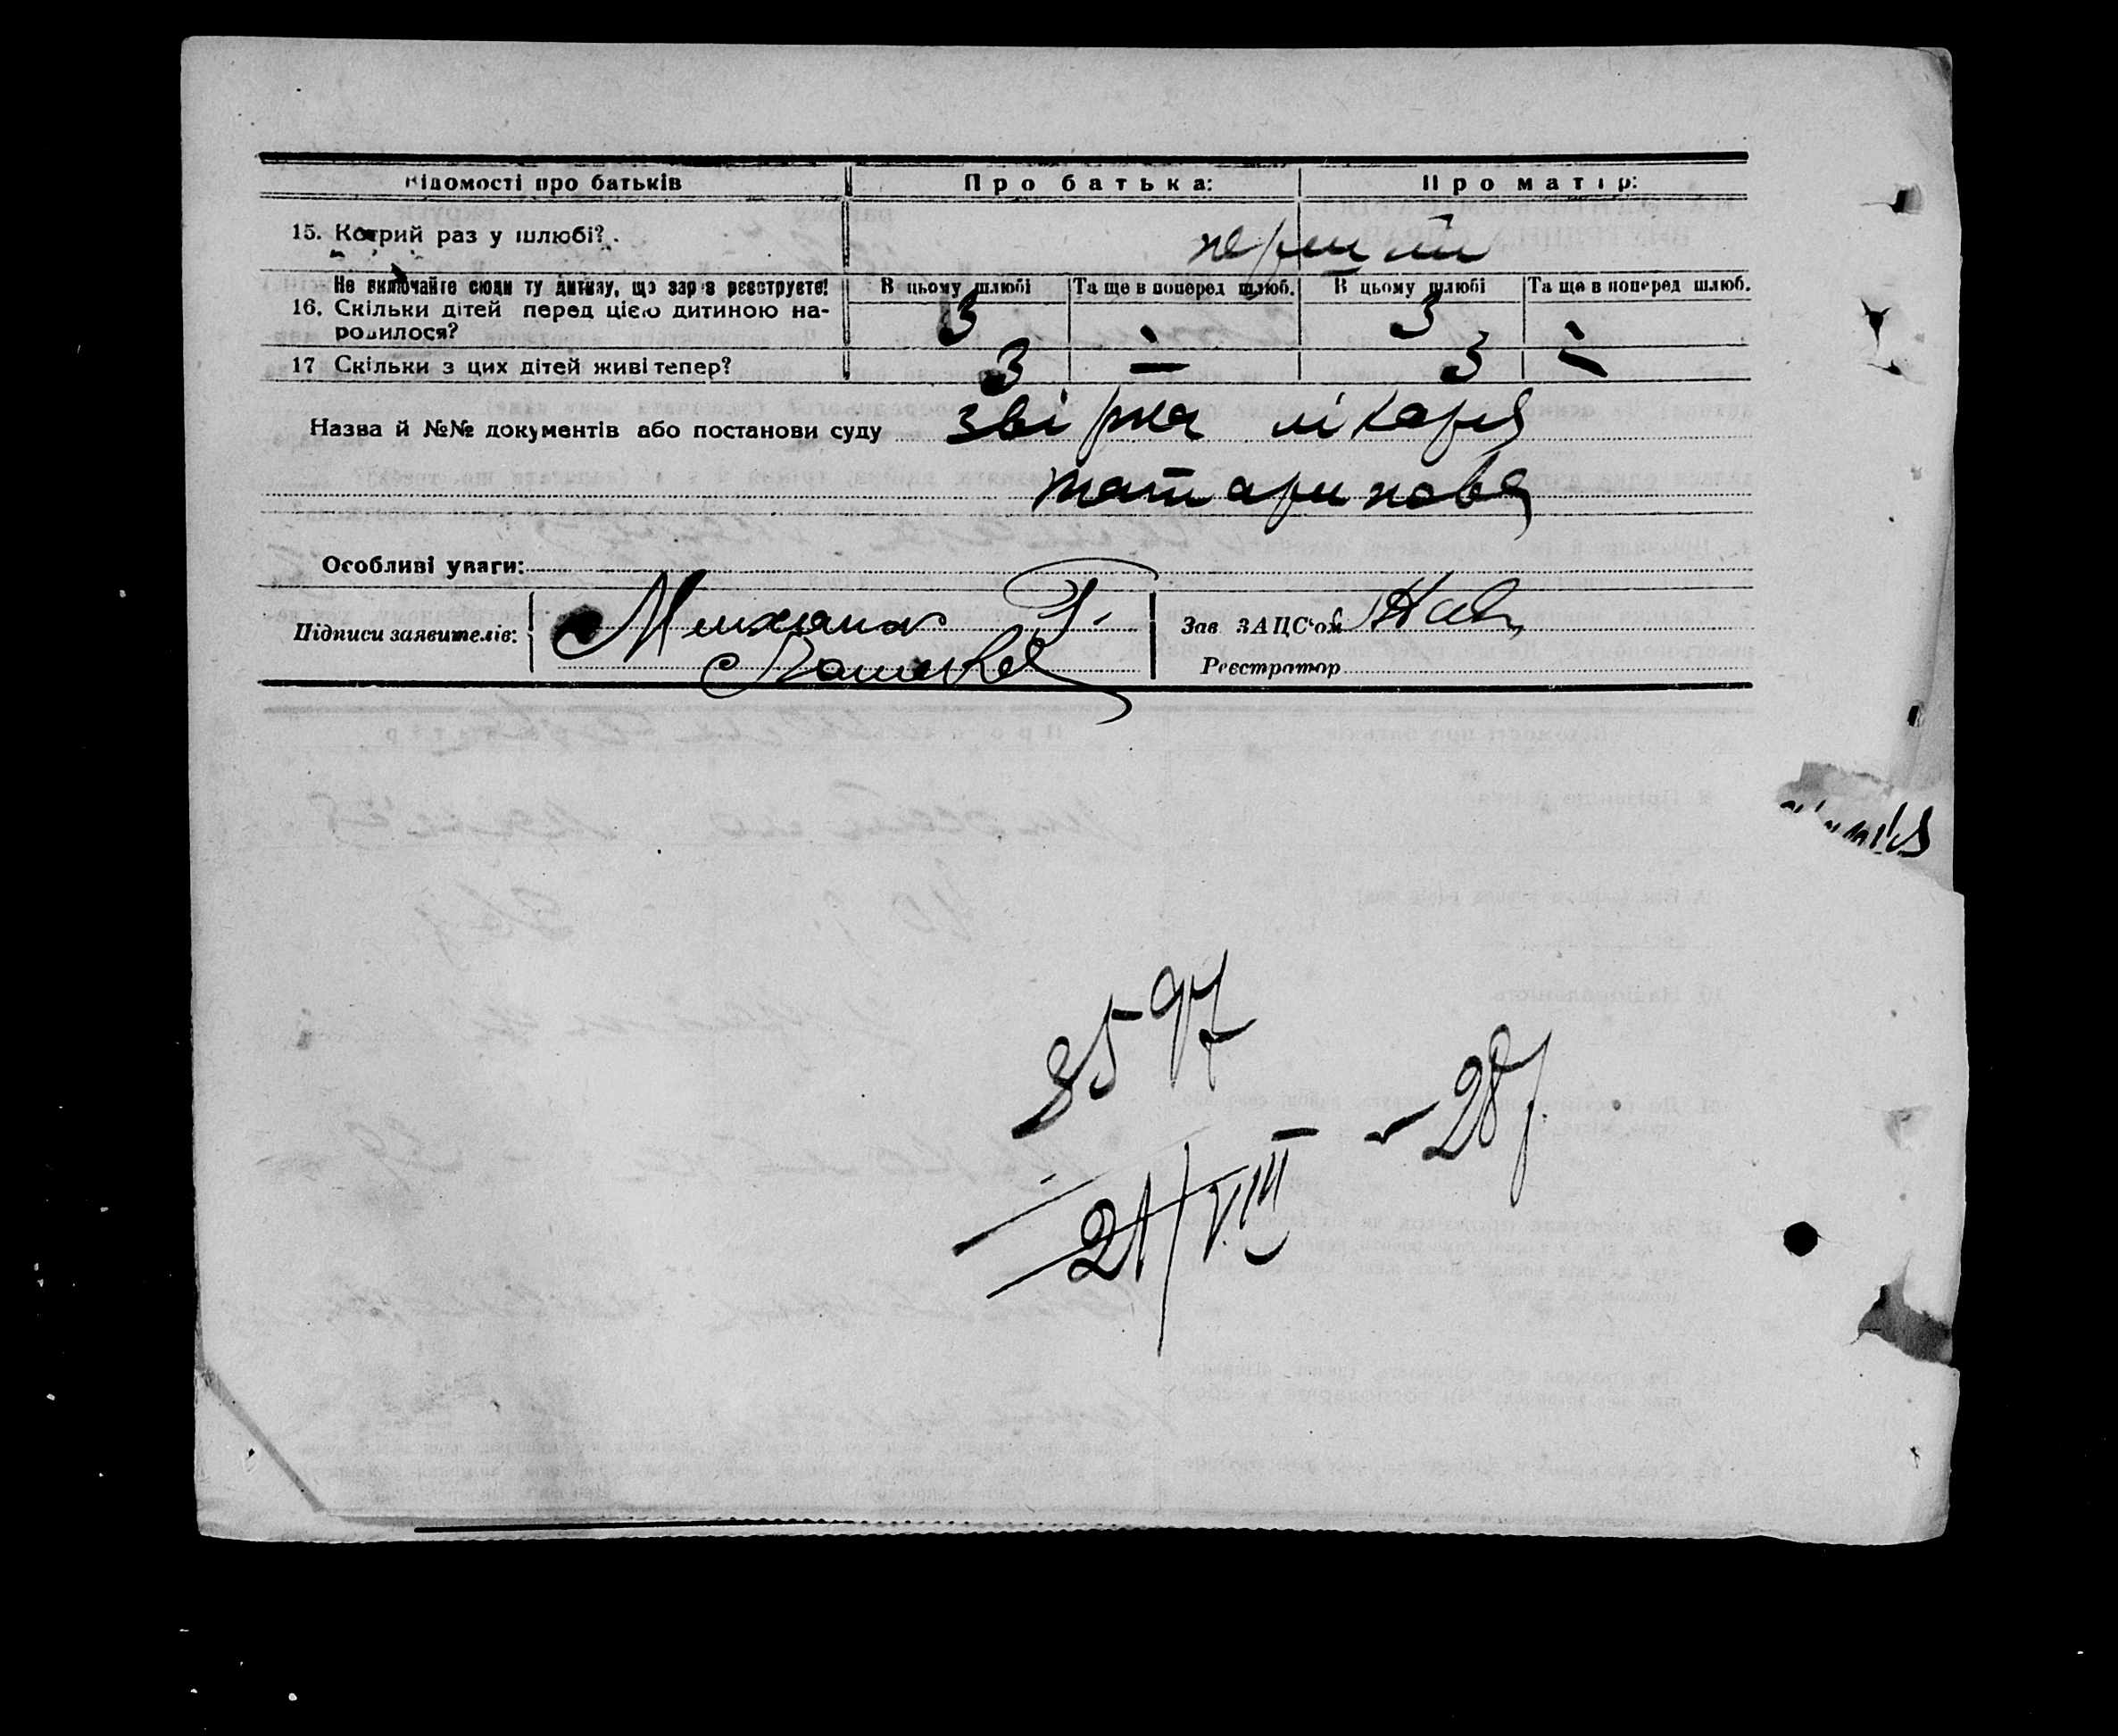 Відомості про батьків Про батька: Про матір:
15. Котрий раз у шлюбі? перший
Не включайте сюди ту дитину, що зараз реєструєте! В цьому шлюбі Та ще в поперед шлюб. В цьому шлюбі Та ще в поперед шлюб.
16. Скільки дітей перед цією дитиною народилося? 3 - 3 -
17 Скільки з цих дітей живі тепер? 3 — 3 —
Назва й №№ документів або постанови суду звірка лікаря
татаринова
Особливі уваги:
Підписи заявителів: Г. Зав ЗАЦС'ом
Реєстратор
3597
21/VIII – 28 р.